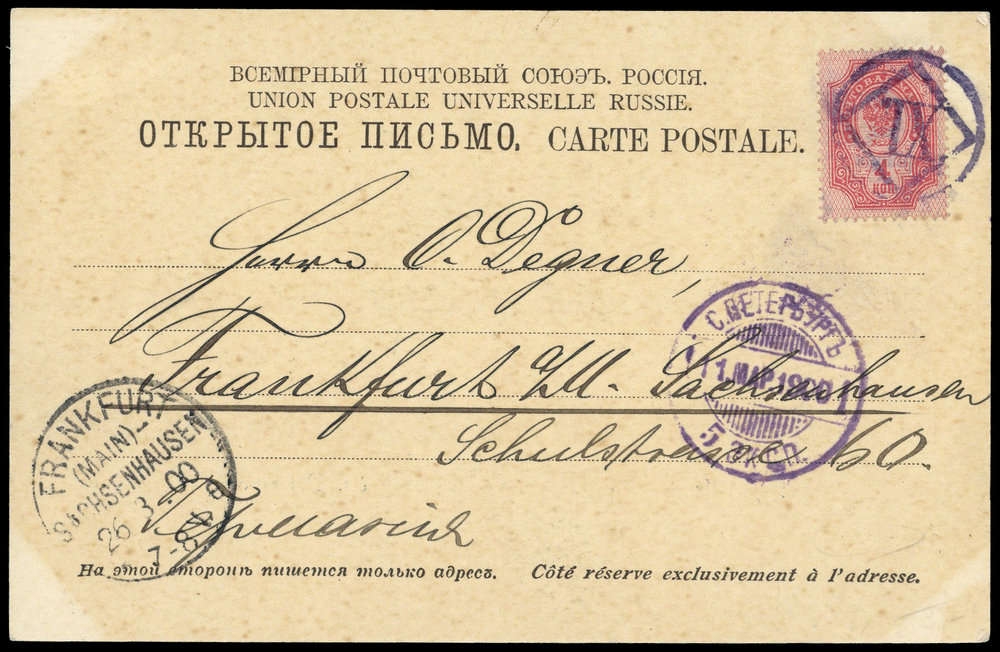 ВСЕМІРНЫЙ ПОЧТОВЫЙ СОЮЭЪ. РОССІЯ.
UNION POSTALE UNIVERSELLE RUSSIE.
ОТКРЫТОЕ ПИСЬМО. CARTE POSTALE.
4
КОП
Herrn O. Degner,
С.ПЕТЕРБУРГЪ
11 МАР.1900
5
Frankfurt a/M. Sachsenhausen
Schulstrasse 60.
Германія
FRANKFURT
(MAIN)-
SACHSENHAUSEN
26 3.00
7-8
На этой сторонѣ пишется только адресъ. Côté réserve exclusivement à l'adresse.